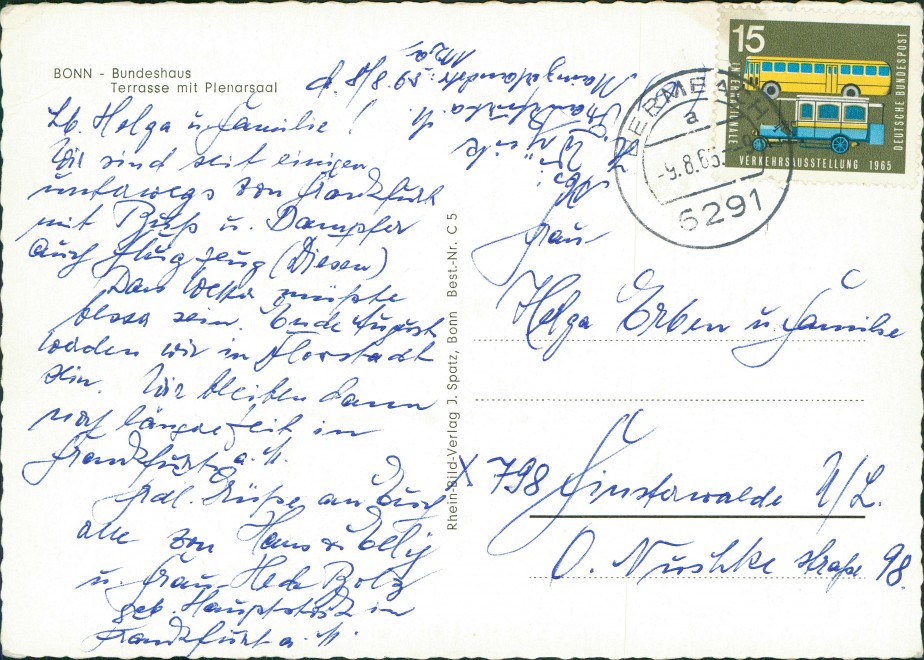 BONN - Bundeshaus
Terrasse mit Plenarsaal
Lb. Helga u. Familie!
Wir sind seit einigen
unterwegs von Frankfurt
mit Buss u. Dampfer
auch Flugzeug (Düsen)
Das Wetter müsste
besser sein. Ende August
werden wir in Florstadt
sein. Wir bleiben dann
noch längere Zeit in
Frankfurt a. M.
Hrdl. Grüße an Euch
alle von Hans &
u. Frau Hede Bolz
geb. Hauptstock in
Frankfurt a. M.
Rhein-Bild-Verlag J. Spatz, Bonn Best.-Nr. C 5
Frankfurt a. M.
Mainzerlandstr.
15
INTERNATIONALE
VERKEHRSAUSSTELLUNG 1965
DEUTSCHE BUNDESPOST
HERMBACH
a
-9.8.65
6291
Frau
Helga Erben u. Familie
X 798 Finsterwalde N/L.
O. Nuschke straße 98.